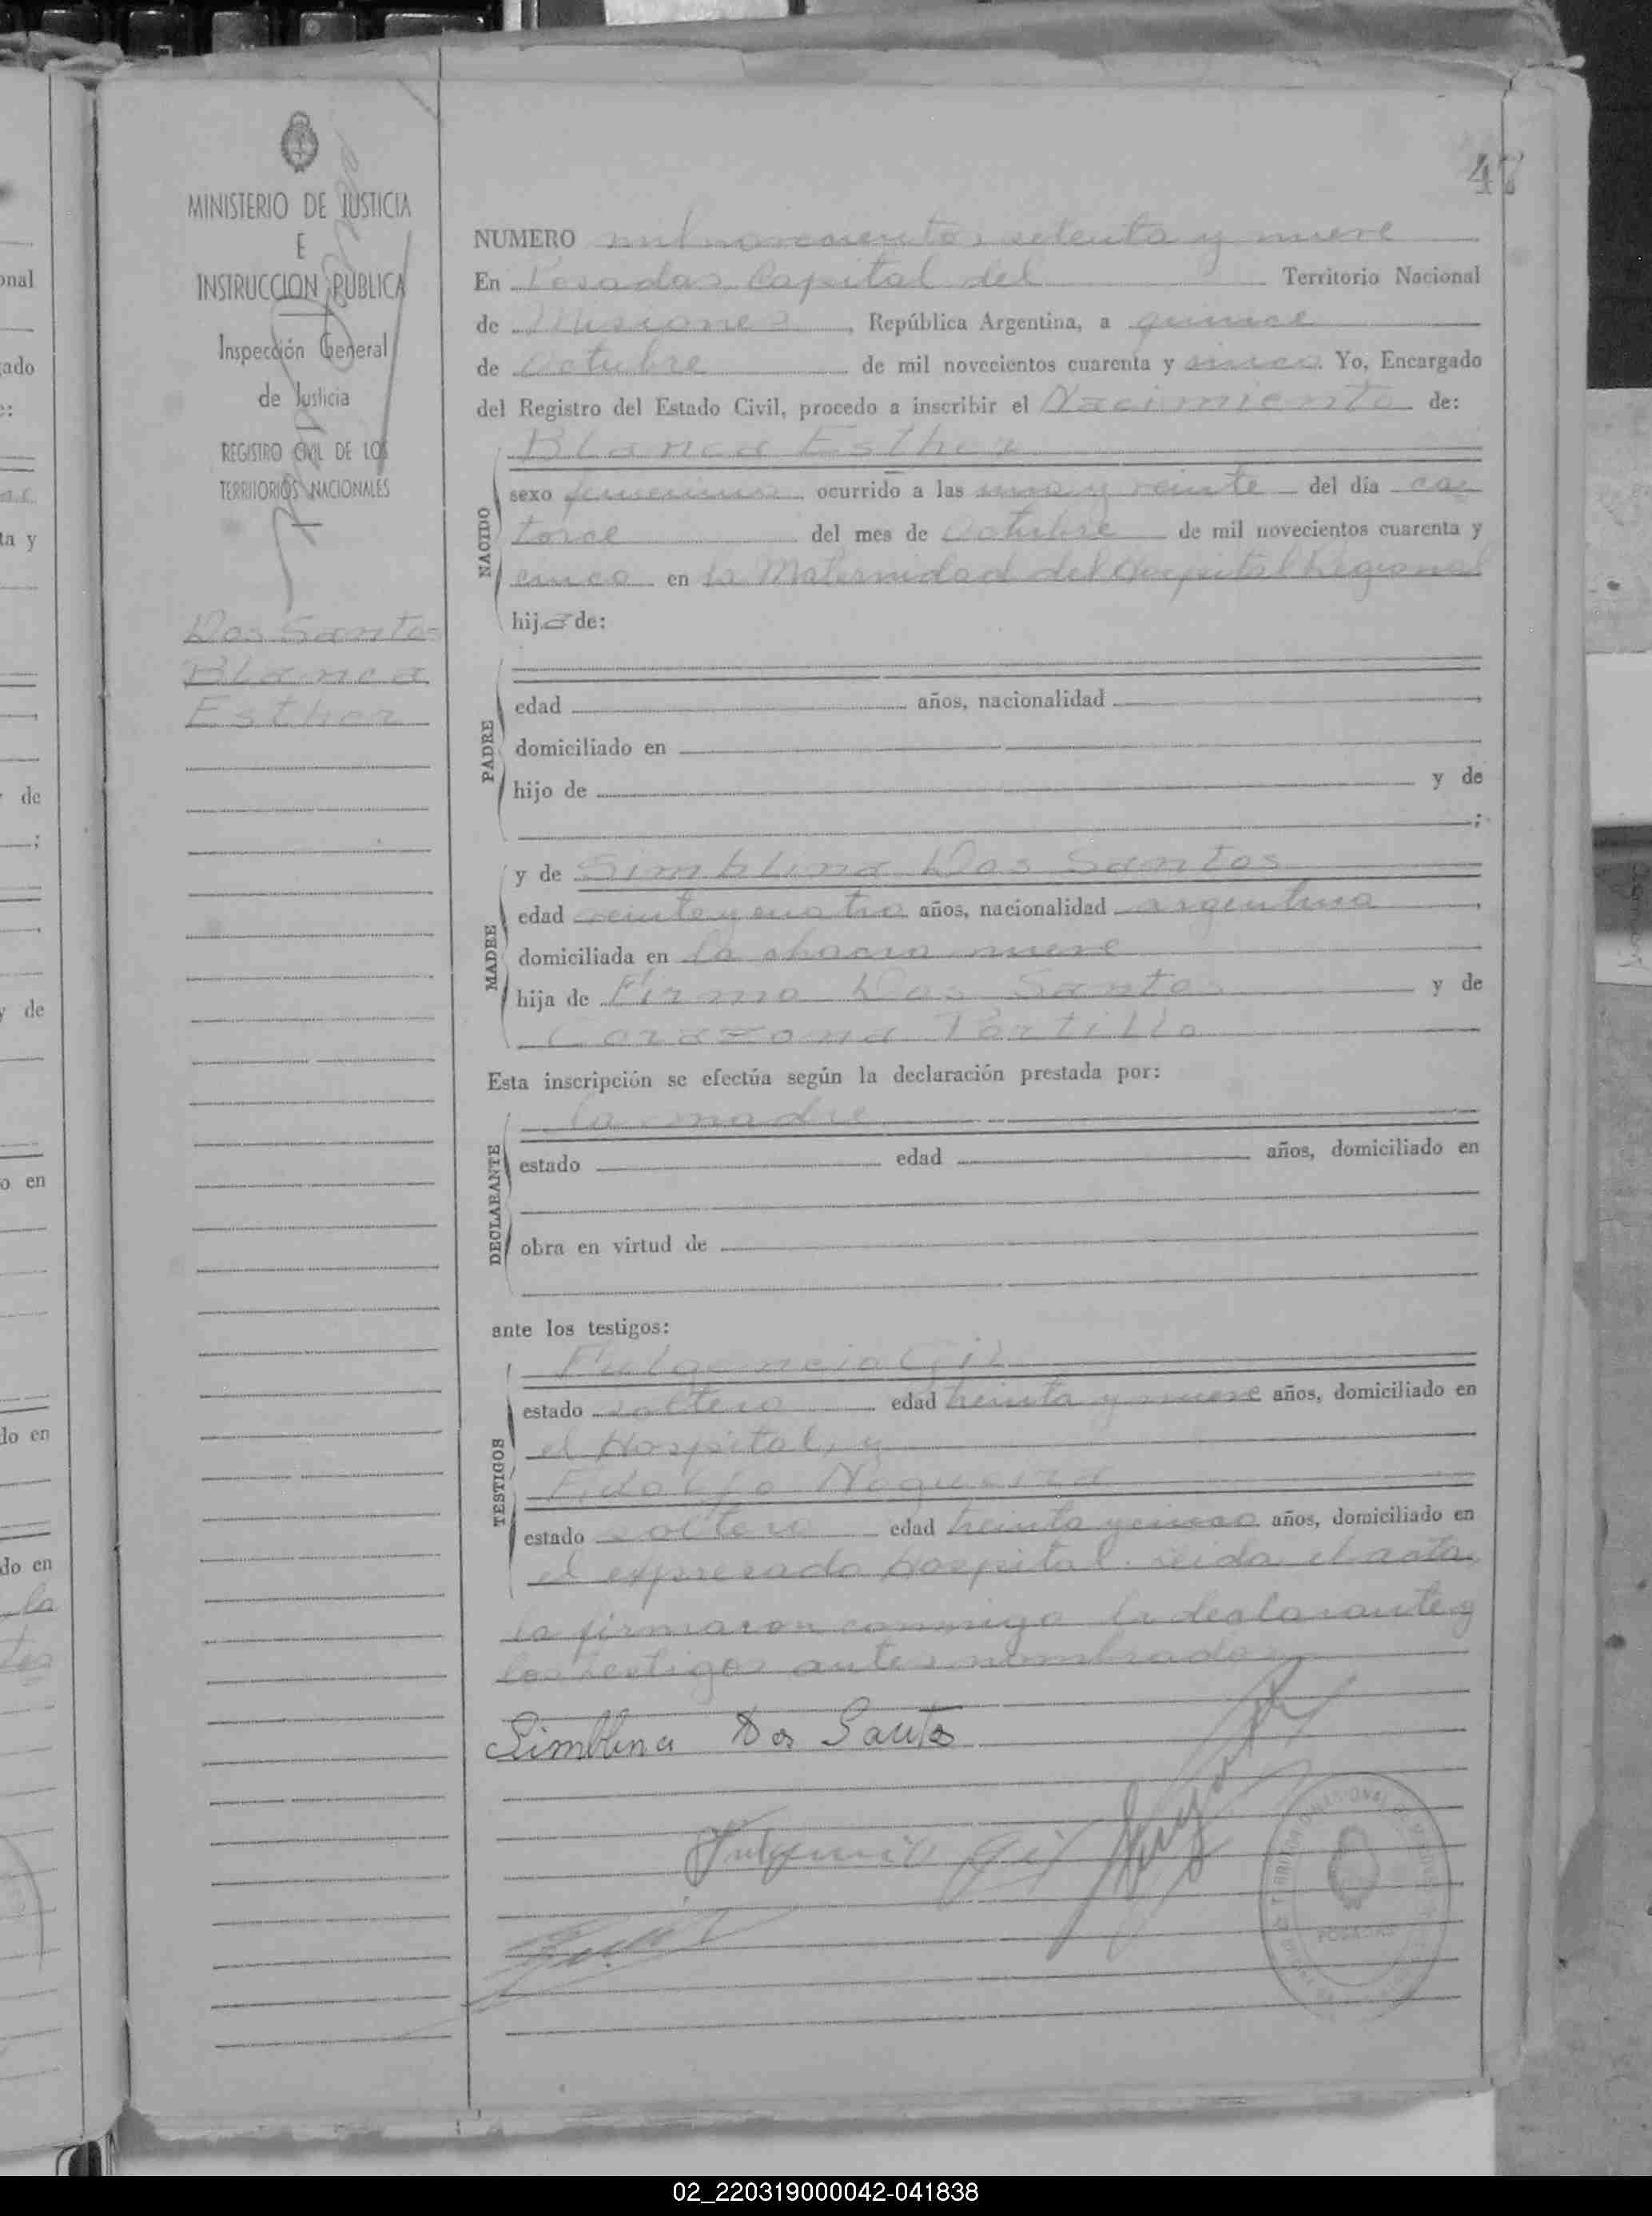 47
MINISTERIO DE JUSTICIA
E
INSTRUCCION PUBLICA
Inspección General
de Justicia
REGISTRO CIVIL DE LOS
TERRITORIOS NACIONALES
Dos Santos
Blanca
Esther
NUMERO mil novecientos setenta y nueve
En Posadas Capital del Territorio Nacional
de Misiones, República Argentina, a quince
de Octubre de mil novecientos cuarenta y cinco. Yo, Encargado
del Registro del Estado Civil, procedo a inscribir el Nacimiento de:
Blanca Esther
NACIDO
sexo femenino ocurrido a las una y veinte del día ca
torce del mes de Octubre de mil novecientos cuarenta y
cinco en la Maternidad del Hospital Regional
hija de:
PADRE
edad años, nacionalidad
domiciliado en
hijo de y de
;
MADRE
y de Simblina Dos Santos
edad veinte y cuatro años, nacionalidad argentina
domiciliada en la chacra nueve
hija de Firmo Dos Santos y de
Corazona Portillo
Esta inscripción se efectúa según la declaración prestada por:
DECLARANTE
la madre
estado edad años, domiciliado en
obra en virtud de
ante los testigos:
TESTIGOS
Fulgencio Gil
estado soltero edad treinta y nueve años, domiciliado en
el Hospital, y
Nogueira
estado soltero edad treinta y cinco años, domiciliado en
el expresado Hospital. Leida el acta,
la firmaron conmigo la declarante y
los testigos antes nombrados
Simblina Dos Santos
Fulgencio Gil
POSADAS
02_220319000042-041838